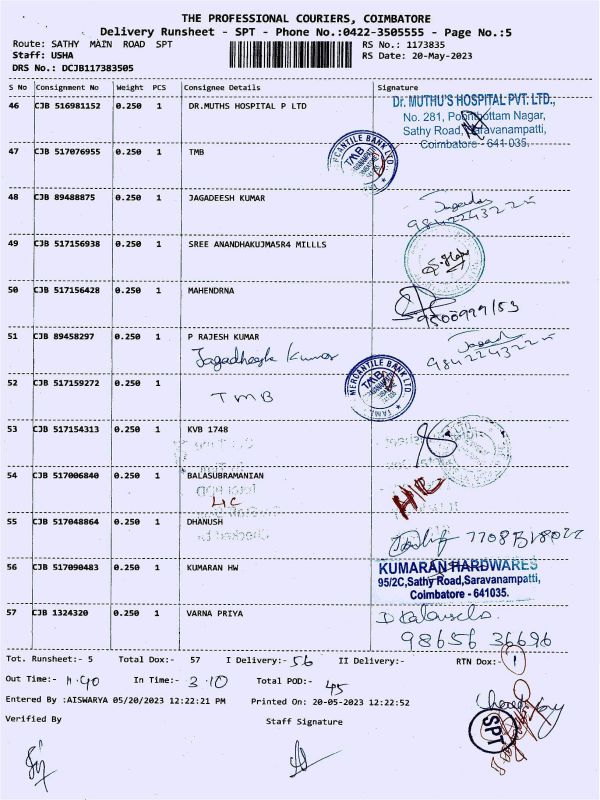 THE PROFESSIONAL COURIERS, COIMBATORE
Delivery Runsheet - SPT - Phone No.:0422-3505555 - Page No.:5
Route: SATHY MAIN ROAD SPT
RS No.: 1173835
Staff: USHA
RS Date: 20-May-2023
DRS No.: DCJB117383505
S No Consignment No Weight PCS Consignee Details Signature
46 CJB 516981152 0.250 1 DR.MUTHS HOSPITAL P LTD
Dr. MUTHU'S HOSPITAL PVT. LTD.,
No. 281, Poombottam Nagar,
Sathy Road, Saravanampatti,
Coimbatore - 641 035.
47 CJB 517076955 0.250 1 TMB
MERCANTILE BANK LTD.
TMB
48 CJB 89488875 0.250 1 JAGADEESH KUMAR
49 CJB 517156938 0.250 1 SREE ANANDHAKUJMA5R4 MILLLS
50 CJB 517156428 0.250 1 MAHENDRNA
51 CJB 89458297 0.250 1 P RAJESH KUMAR
Jagadheesh Kumar
52 CJB 517159272 0.250 1
TMB
MERCANTILE BANK LTD.
TMB
53 CJB 517154313 0.250 1 KVB 1748
54 CJB 517006840 0.250 1 BALASUBRAMANIAN
LIC
55 CJB 517048864 0.250 1 DHANUSH
56 CJB 517090483 0.250 1 KUMARAN HW
KUMARAN HARDWARES
95/2C, Sathy Road, Saravanampatti,
Coimbatore - 641035.
57 CJB 1324320 0.250 1 VARNA PRIYA
98656 36696
Tot. Runsheet:- 5 Total Dox:- 57 I Delivery:- 56 II Delivery:- RTN Dox:- 1
Out Time:- 11.40 In Time:- 3.10 Total POD:- 45
Entered By :AISWARYA 05/20/2023 12:22:21 PM Printed On: 20-05-2023 12:22:52
Verified By Staff Signature
SPT